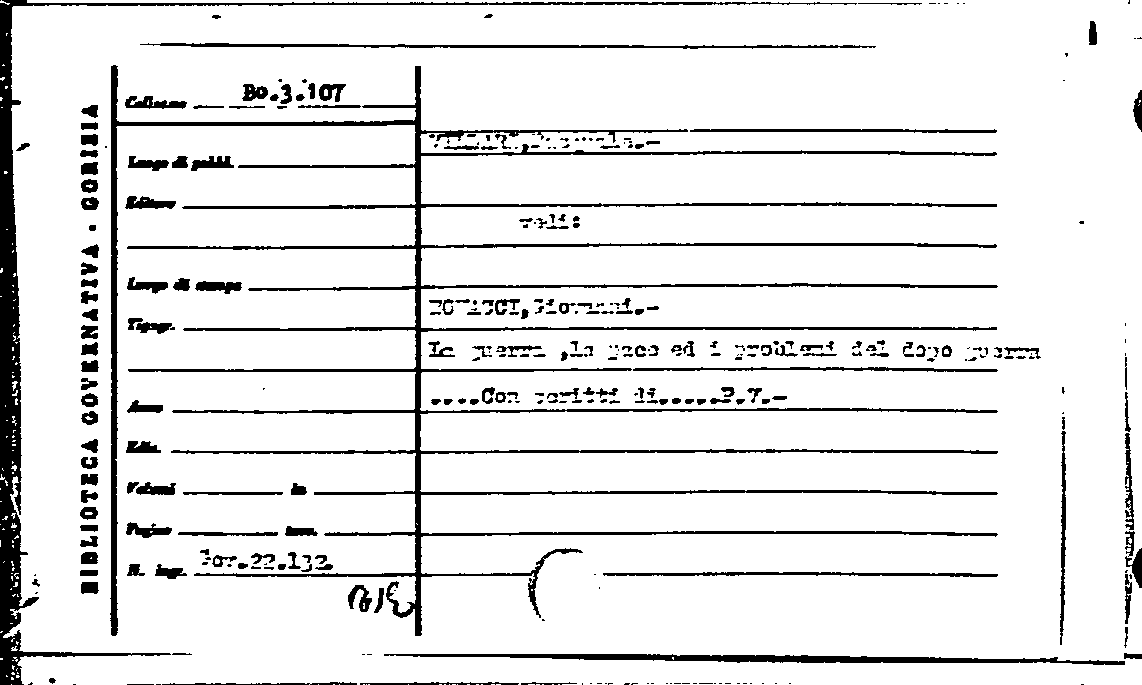 BIBLIOTECA GOVERNATIVA - GORIZIA
Collocaz. Bo.3.107
VILLARI,Pasquale.-
Luogo di pubbl.
Editore
vedi:
Luogo di stampa
BOVACCI,Giovanni.-
Tipogr.
La guerra ,la pace ed i problemi del dopo guerra
....Con scritti di.....P.V.-
Anno
Ediz.
Volumi in
Pagine tav.
N. ingr. For.22.132.